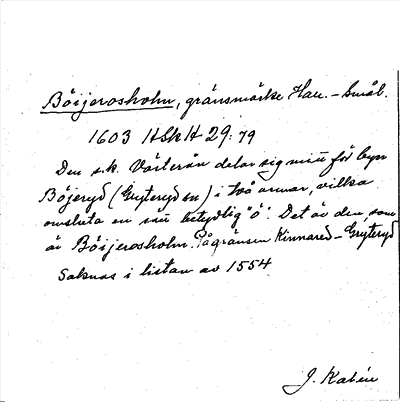 Böijerosholm, gränsmärke Hall. – Smål.
1603 HSkH 29:79
Den s.k. Västerån delar sig mitt för byn
Böjeryd (Gryteryd sn) i två armar, vilka
omsluta en rätt betydlig "ö". Det är den, som
är Böijerosholm. På gränsen Kinnared – Gryteryd
Saknas i listan av 1554
J. Kalén